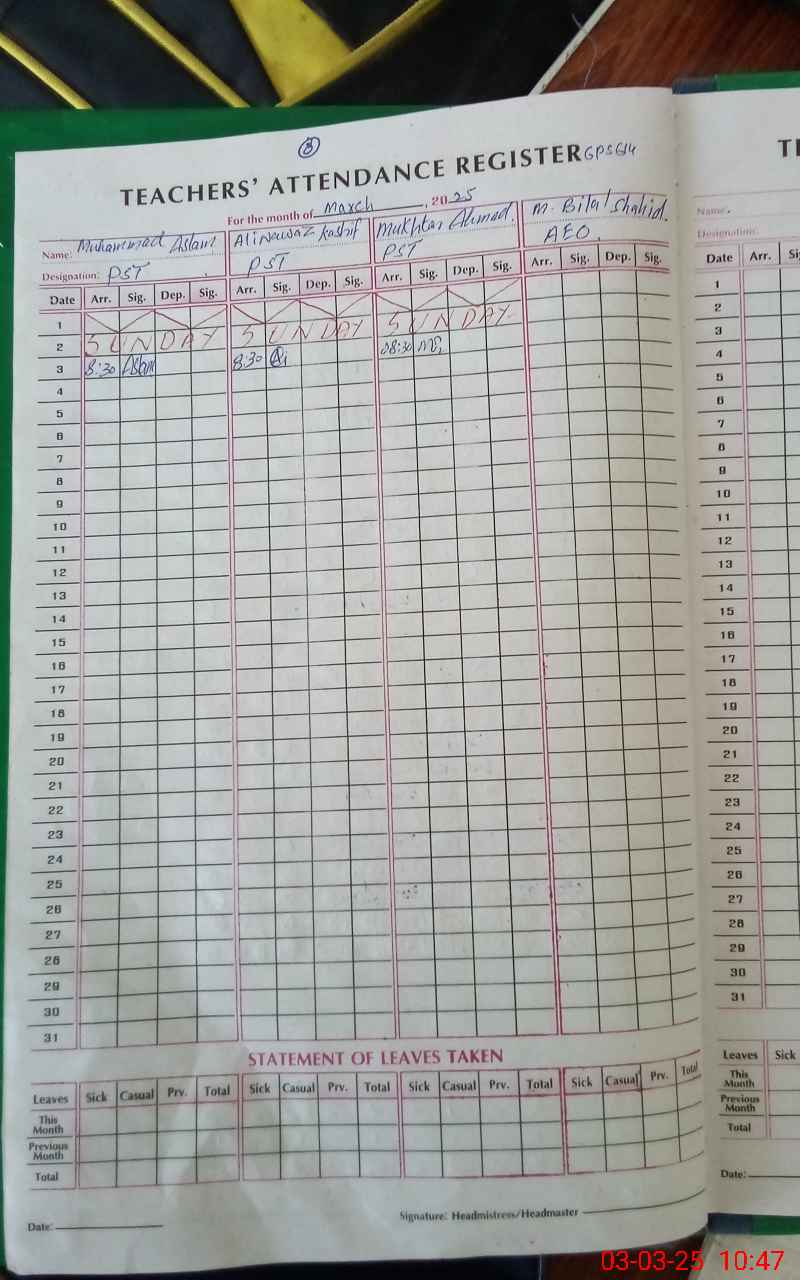 8
TEACHERS' ATTENDANCE REGISTER GPS 614
For the month of March, 2025
Name: Muhammad Aslam Ali Nawaz Kashif Mukhtar Ahmed. M. Bilal Shahid.
Designation: PST PST PST AEO.
Date Arr. Sig. Dep. Sig. Arr. Sig. Dep. Sig. Arr. Sig. Dep. Sig. Arr. Sig. Dep. Sig.
1
2 SUNDAY SUNDAY SUNDAY
3 8:30 Aslam 8:30 08:30
4
5
6
7
8
9
10
11
12
13
14
15
16
17
18
19
20
21
22
23
24
25
26
27
28
29
30
31
STATEMENT OF LEAVES TAKEN
Leaves Sick Casual Prv. Total Sick Casual Prv. Total Sick Casual Prv. Total Sick Casual Prv. Total
This Month
Previous Month
Total
Date:
Signature: Headmistress/Headmaster
Name.
Designation:
Date Arr.
1
2
3
4
5
6
7
8
9
10
11
12
13
14
15
16
17
18
19
20
21
22
23
24
25
26
27
28
29
30
31
Leaves Sick
This Month
Previous Month
Total
Date:
03-03-25 10:47